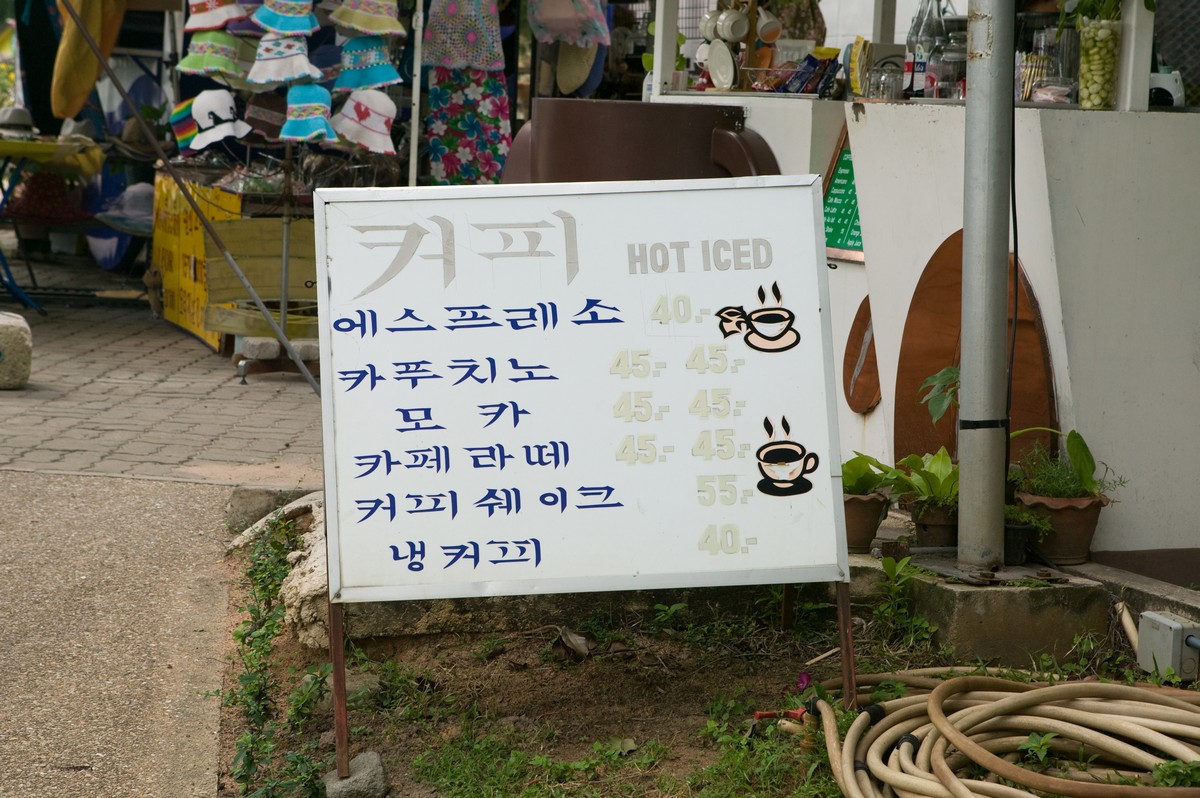 커피 HOT ICED
에스프레소 40.-
카푸치노 45.- 45.-
모 카 45.- 45.-
카페라떼 45.- 45.-
커피 쉐이크 55.-
냉커피 40.-